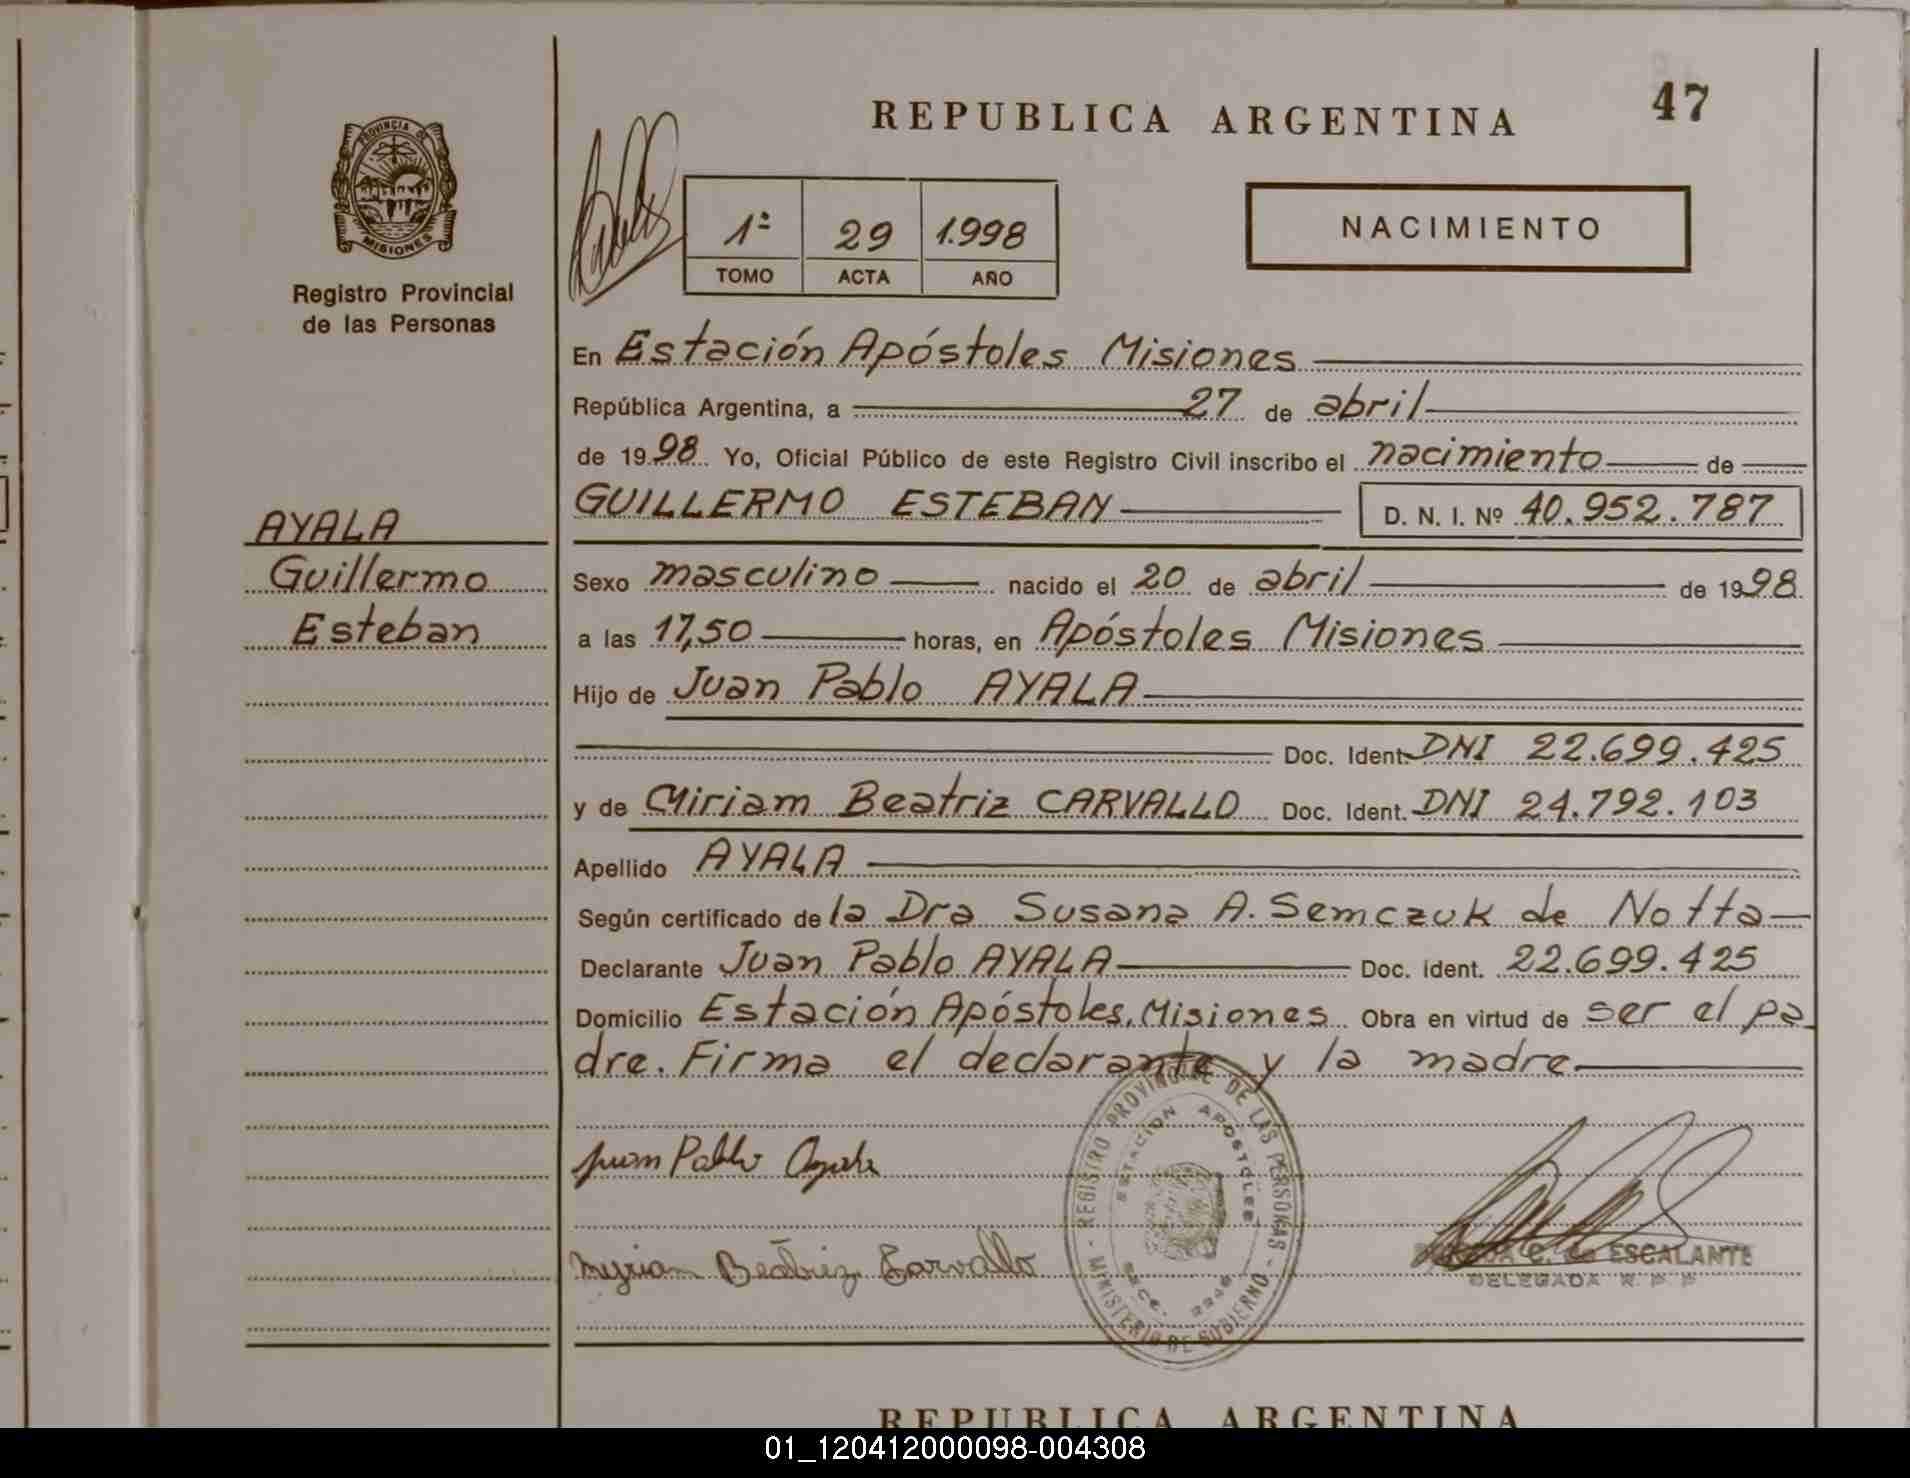 47
REPUBLICA ARGENTINA
PROVINCIA DE
MISIONES
Registro Provincial
de las Personas
1ª 29 1.998
TOMO ACTA AÑO
NACIMIENTO
En Estación Apóstoles Misiones
República Argentina, a 27 de abril
de 1998 Yo, Oficial Público de este Registro Civil inscribo el nacimiento de
GUILLERMO ESTEBAN D. N. I. Nº 40.952.787
AYALA
Guillermo
Esteban
Sexo masculino nacido el 20 de abril de 1998
a las 17,50 horas, en Apóstoles Misiones
Hijo de Juan Pablo AYALA
Doc. Ident. DNI 22.699.425
y de Miriam Beatriz CARVALLO Doc. Ident. DNI 24.792.103
Apellido AYALA
Según certificado de la Dra Susana A. Semczuk de Notta
Declarante Juan Pablo AYALA Doc. Ident. 22.699.425
Domicilio Estación Apóstoles, Misiones Obra en virtud de ser el pa
dre. Firma el declarante y la madre
Juan Pablo Ayala
Myriam Beatriz Carvallo
REGISTRO PROVINCIAL DE LAS PERSONAS - MINISTERIO DE GOBIERNO -
ESTACION APOSTOLES
C. de ESCALANTE
DELEGADA R. P. P.
REPUBLICA ARGENTINA
01_120412000098-004308